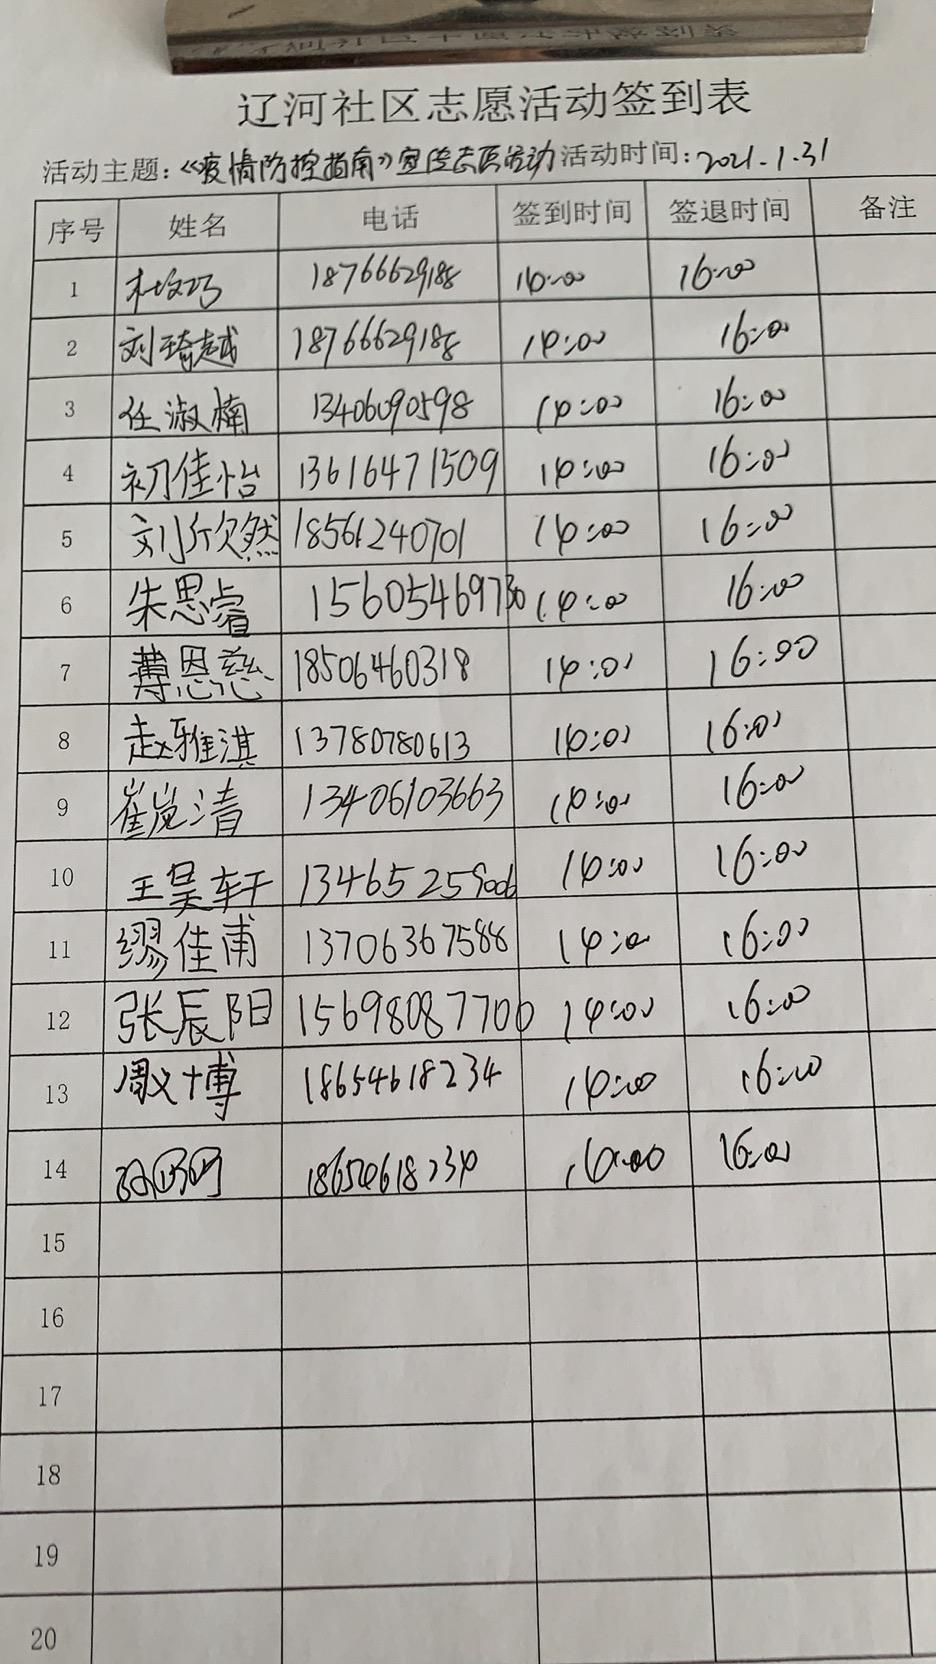 辽河社区志愿活动签到表
活动主题:《疫情防控指南》宣传志愿活动 活动时间:2021.1.31
序号 姓名 电话 签到时间 签退时间 备注
1 18766629188 14:00 16:00
2 刘琦越 18766629188 14:00 16:00
3 任淑楠 13406090598 14:00 16:00
4 初佳怡 13616471509 14:00 16:00
5 刘欣然 18561240701 14:00 16:00
6 朱思睿 15605469730 14:00 16:00
7 薄恩慈 18506460318 14:00 16:00
8 赵雅淇 13780780613 14:00 16:00
9 崔岚清 13406103663 14:00 16:00
10 王昊轩 13465259006 14:00 16:00
11 缪佳甫 13706367588 14:00 16:00
12 张辰阳 15698087700 14:00 16:00
13 周文博 18654618234 14:00 16:00
14 18654618234 14:00 16:00
15
16
17
18
19
20